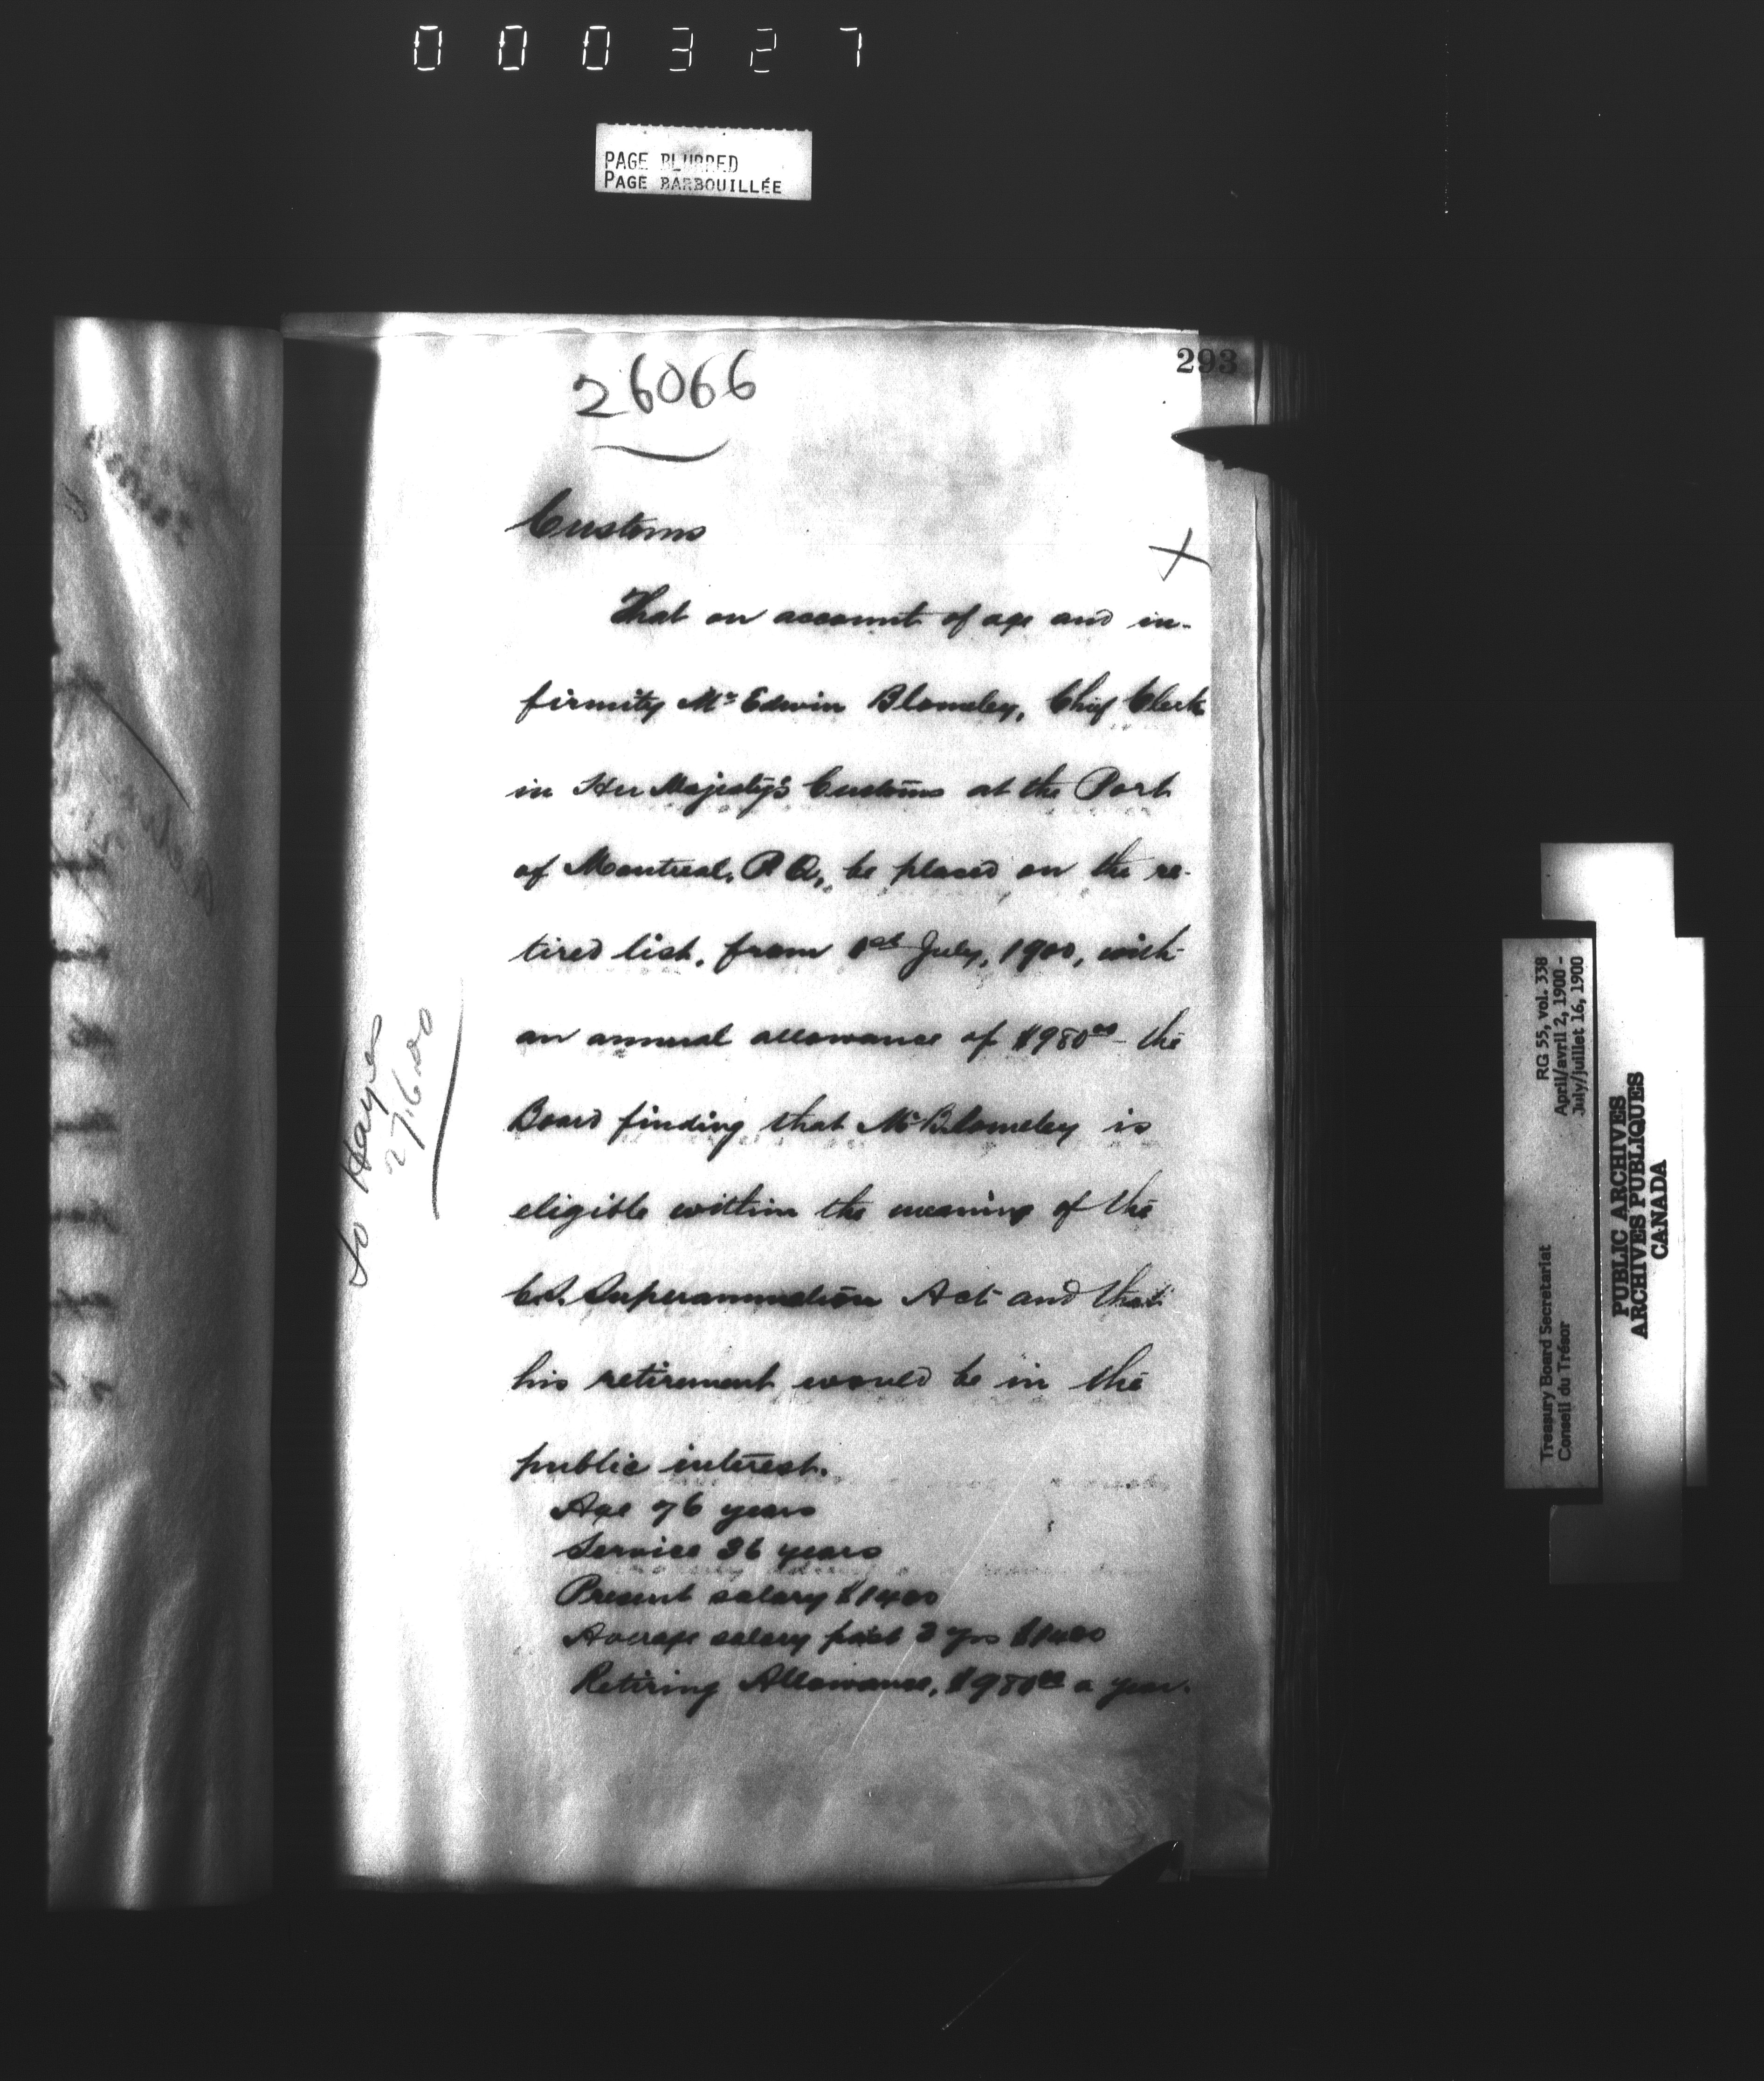 000327
PAGE BLURRED
PAGE BARBOUILLÉE
293
26066
Customs
That on account of age and in-
firmity Mr Edwin Blomeley, Chief Clerk
in Her Majesty's Customs at the Port
of Montreal, P.Q., be placed on the re-
tired list, from 1st July, 1900, with
an annual allowance of $980.00 - the
Board finding that Mr Blomeley is
eligible within the meaning of the
C.S. Superannuation Act and that
his retirement would be in the
public interest.
Age 76 years
Service 36 years
Present salary $1400
Average salary past 3 yrs $1400
Retiring Allowance, $980.00 a year.
to Hayes
27.6.00
Treasury Board Secretariat RG 55, vol. 338
Conseil du Trésor April/avril 2, 1900 -
July/juillet 16, 1900
PUBLIC ARCHIVES
ARCHIVES PUBLIQUES
CANADA